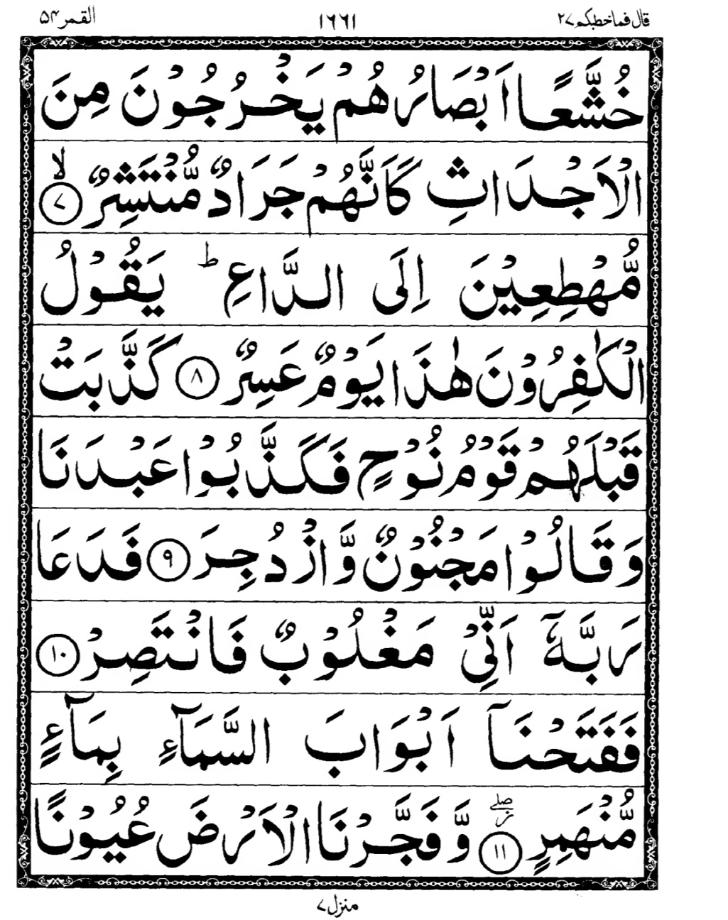 قال فماخطبكم ٢٧ ١٦٦١ القمر ٥٤
خُشَّعًا اَبْصَارُهُمْ يَخْرُجُوْنَ مِنَ
الْاَجْدَاثِ كَاَنَّهُمْ جَرَادٌ مُّنْتَشِرٌ ۙ﴿٧﴾
مُّهْطِعِيْنَ اِلَى الدَّاعِ ؕ يَقُوْلُ
الْكٰفِرُوْنَ هٰذَا يَوْمٌ عَسِرٌ ﴿٨﴾ كَذَّبَتْ
قَبْلَهُمْ قَوْمُ نُوْحٍ فَكَذَّبُوْا عَبْدَنَا
وَقَالُوْا مَجْنُوْنٌ وَّازْدُجِرَ ﴿٩﴾ فَدَعَا
رَبَّهٗۤ اَنِّيْ مَغْلُوْبٌ فَانْتَصِرْ ﴿١٠﴾
فَفَتَحْنَاۤ اَبْوَابَ السَّمَآءِ بِمَآءٍ
مُّنْهَمِرٍ ۖ﴿١١﴾ وَّفَجَّرْنَا الْاَرْضَ عُيُوْنًا
منزل ٧